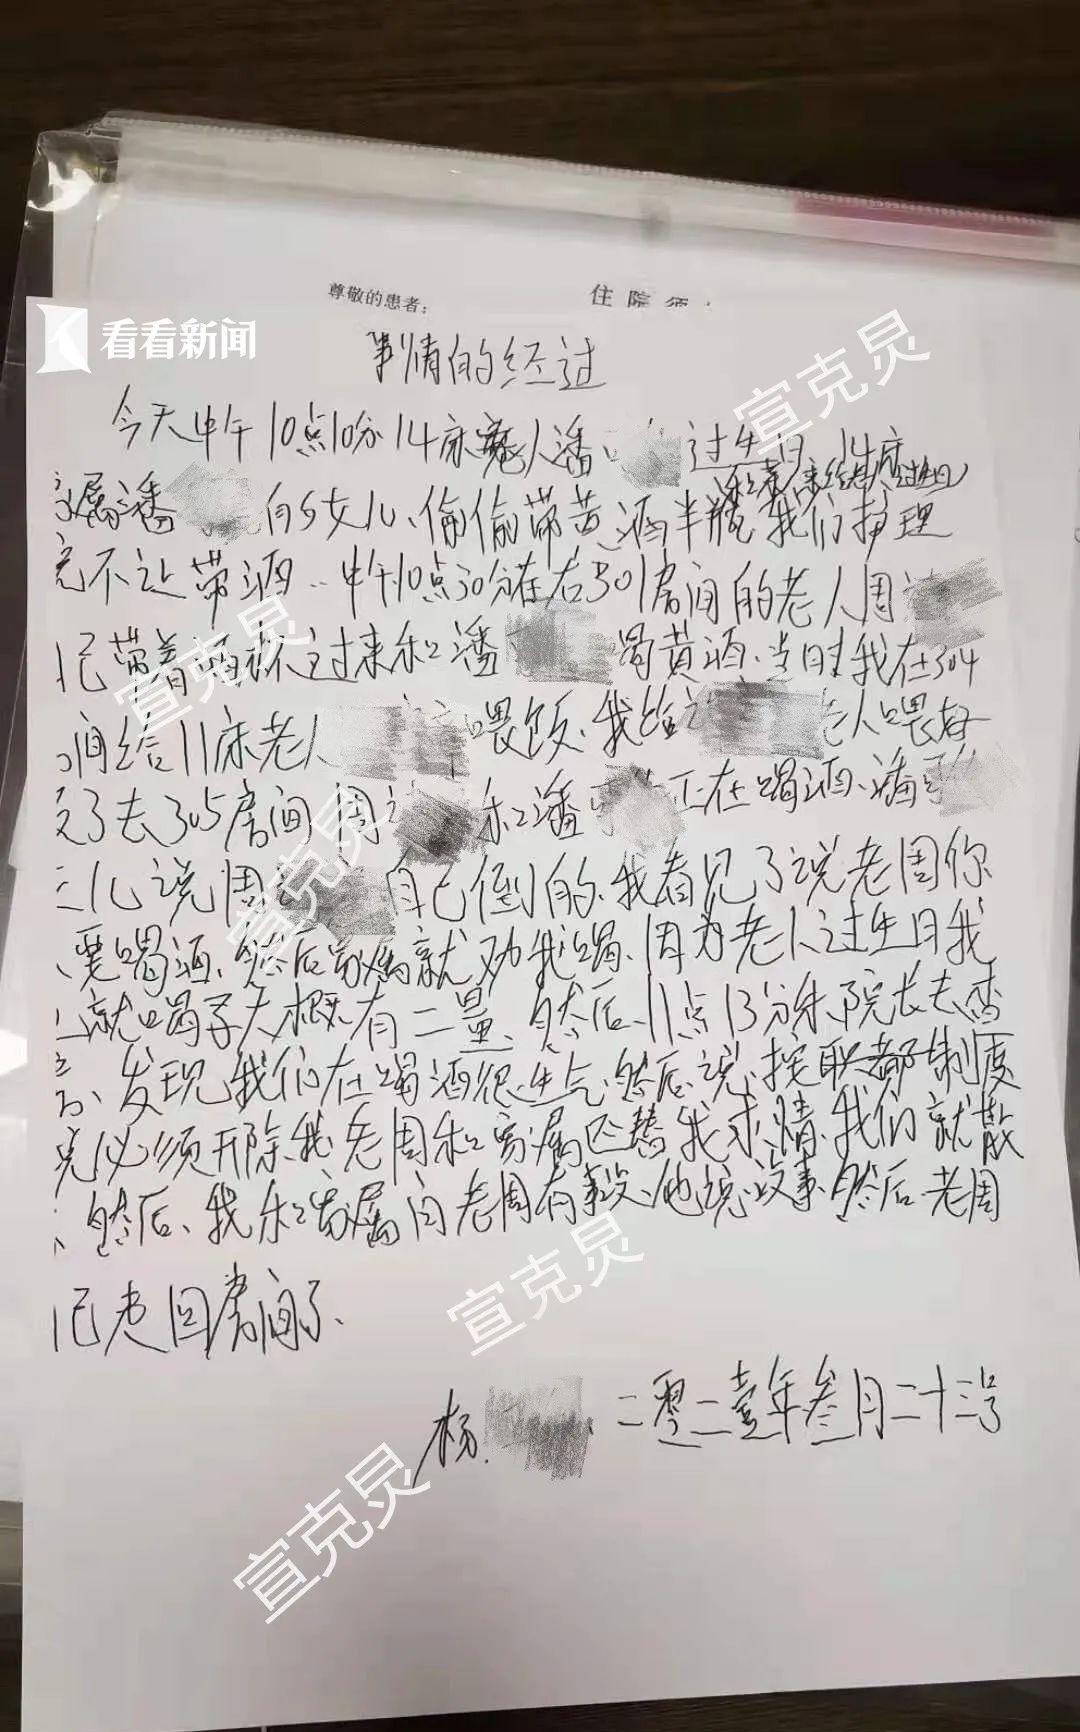 尊敬的患者：
住院须
看看新闻
事情的经过
今天中午10点10分14床老人潘 过生日 14床
家属潘 的女儿、偷偷带黄酒半瓶 我们护理
院不让带酒、中午10点30分在右301房间的老人周
自己带着酒杯过来和潘 喝黄酒、当时我在304
间给11床老人 喂饭、我给 老人喂好
完了去305房间周 和潘 正在喝酒、潘
儿说周 自己倒的、我看见了说老周你
要喝酒、然后家属就劝我喝、因为老人过生日我
就喝了大概有二量、然后、11点13分 院长去查
房、发现我们在喝酒很生气、然后说、按 制度
必须开除我、老周和家属还替我求情、我们就散
、然后、我和家属问老周有事没、他说没事、然后老周
自己走回房间了、
杨 二零二壹年叁月二十三号
宣克炅
宣克炅
宣克炅
宣克炅
宣克炅